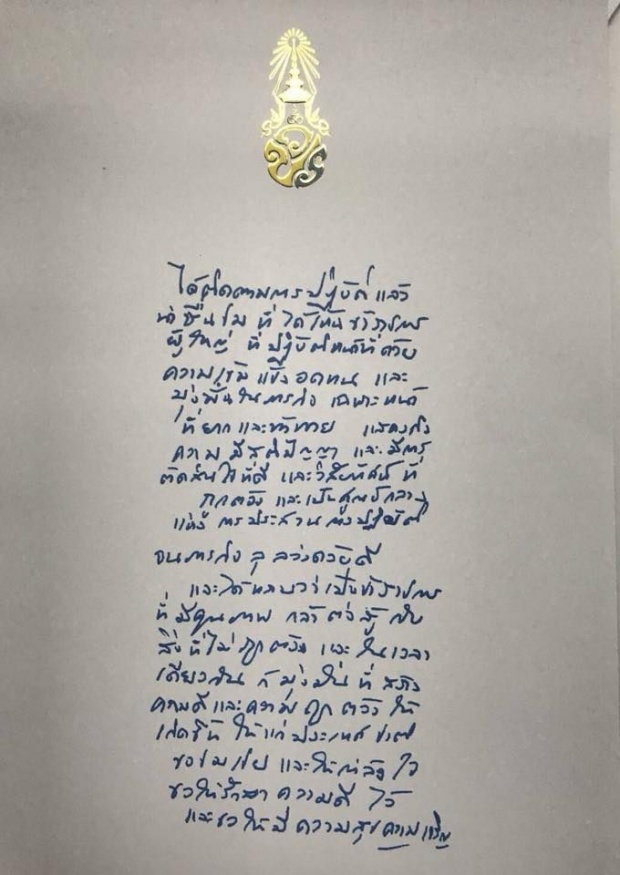 ได้ติดตามการปฏิบัติ แล้ว
น่าชื่นชม ที่ได้เห็นข้าราชการ
ผู้ใหญ่ ที่ปฏิบัติหน้าที่ด้วย
ความเข้มแข็ง อดทน และ
มุ่งมั่นในภารกิจ เฉพาะหน้า
ที่ยากและท้าทาย แสดงถึง
ความมีสติปัญญา และมีการ
ตัดสินใจที่ดี และวิสัยทัศน์ ที่
ถูกต้อง และเป็นศูนย์กลาง
แห่ง การประสานการปฏิบัติ
จนภารกิจ ลุล่วงด้วยดี
และได้ทราบว่าเป็นข้าราชการ
ที่มีคุณภาพ กล้าต่อสู้ กับ
สิ่งที่ไม่ถูกต้อง และในเวลา
เดียวกัน ก็มุ่งมั่น ที่ สร้าง
ความดีและความถูกต้อง ให้
เกิดขึ้น ให้แก่ประเทศชาติ
ขอชมเชย และให้กำลังใจ
ขอให้รักษาความดี ไว้
และขอให้มีความสุขความเจริญ